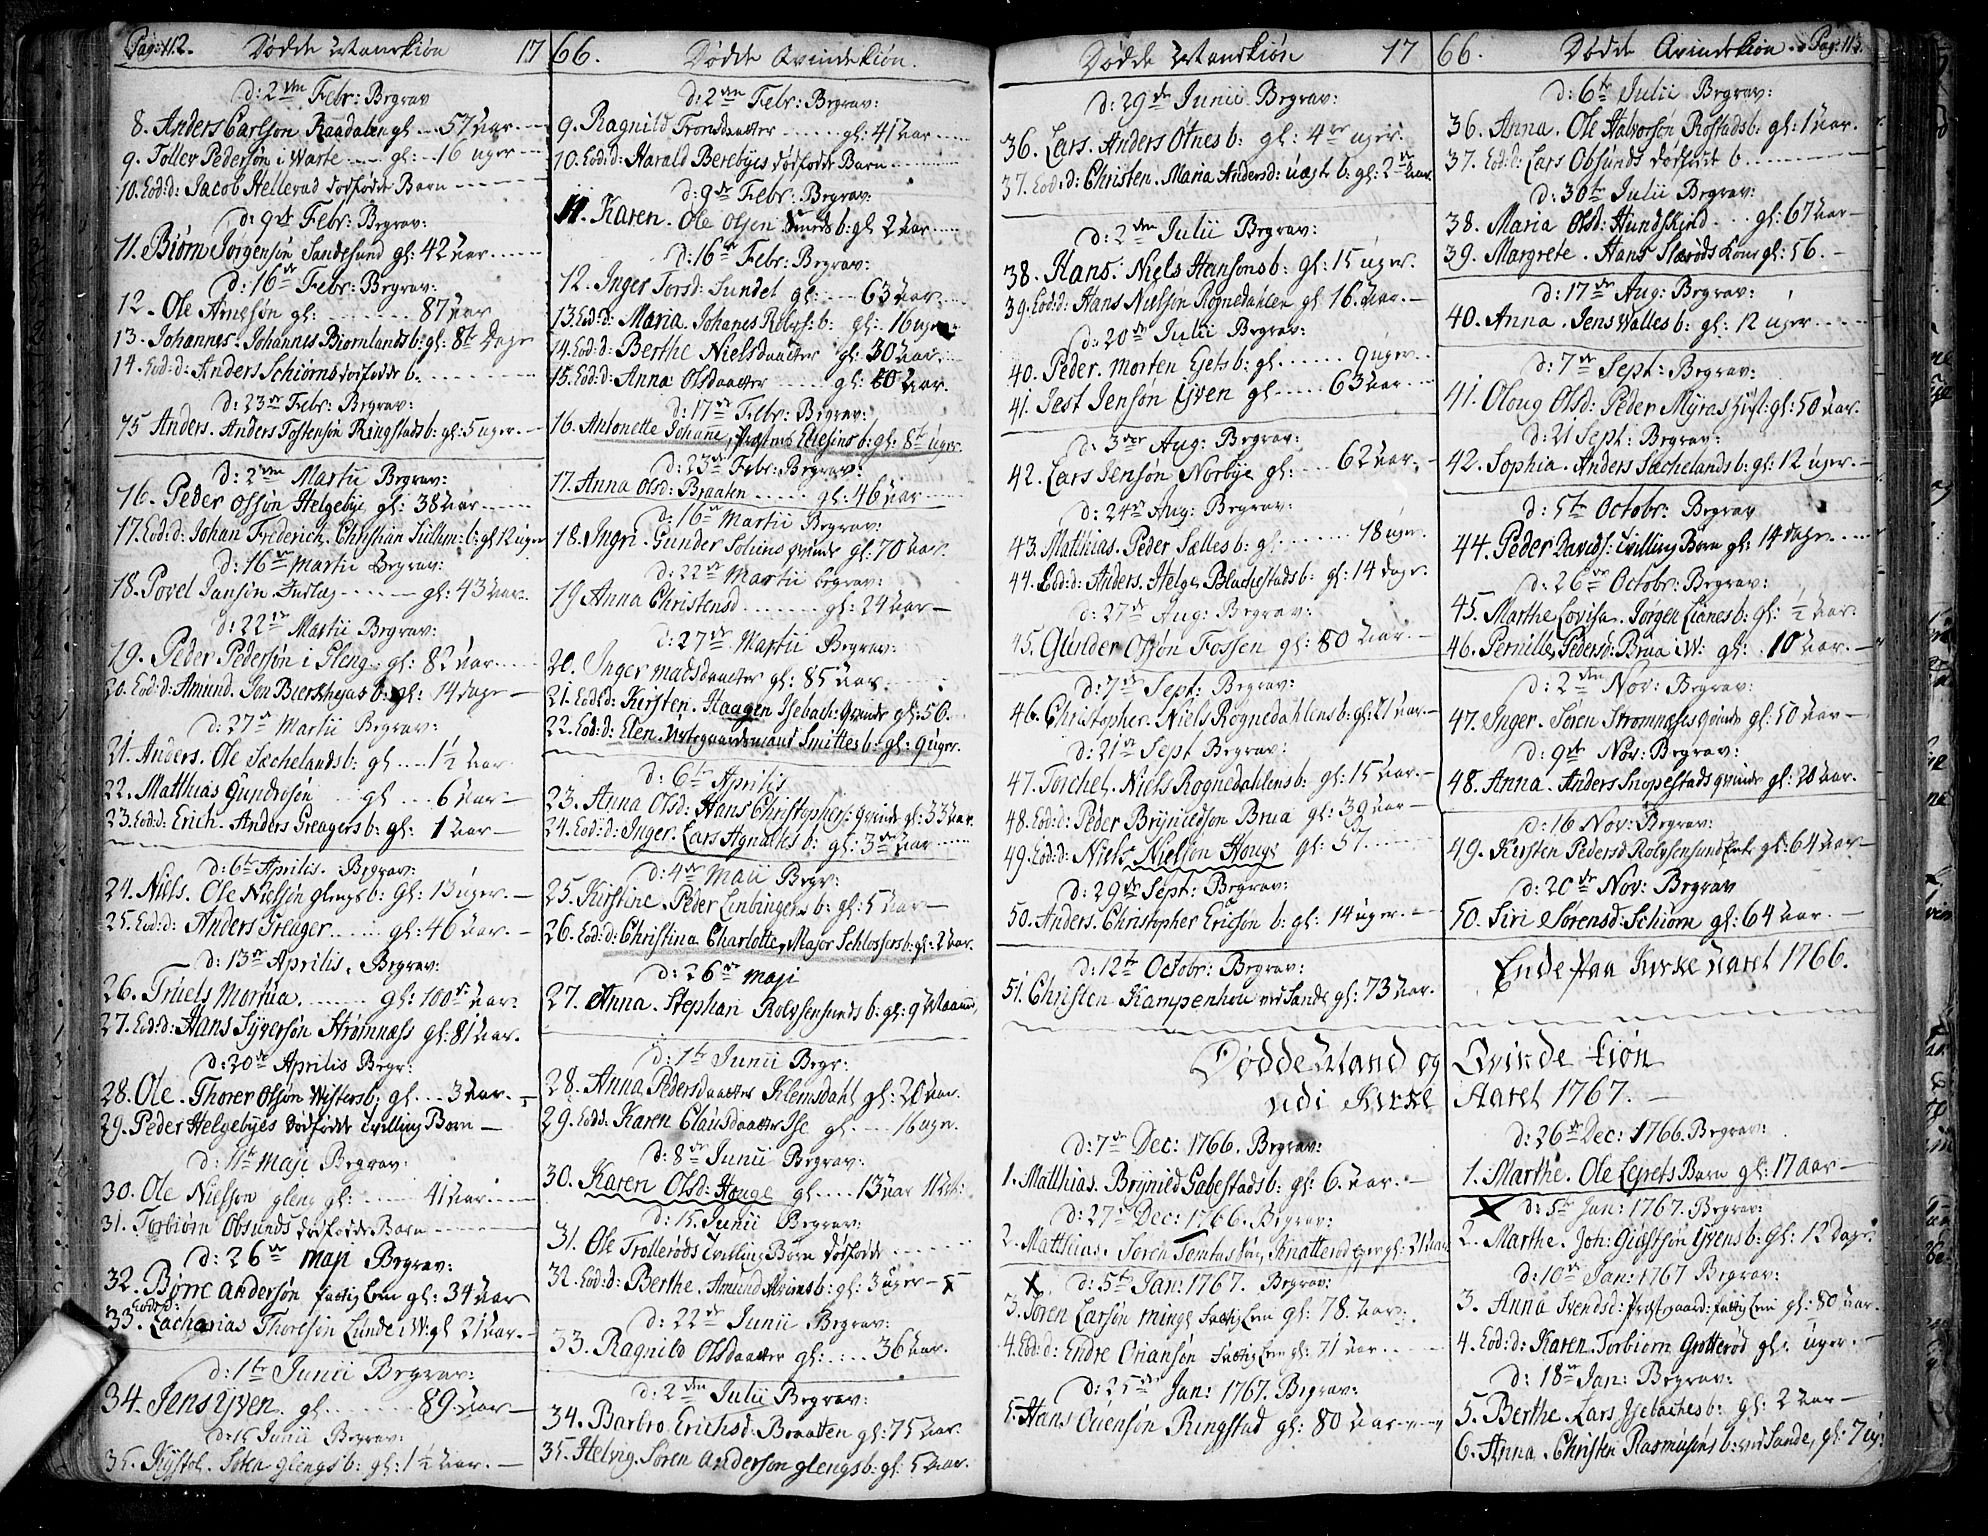 Pag: 112. Dødde Mandkiøn 17
d: 2den Febr: Begrav
8. Anders Carlsøn Raadalen gl --- 57 aar ---
9. Toller Pedersøn i Warte --- gl: -- 16 uger ---
10. Eod: d: Jacob Hellerad dødfødde Barn ---
d: 9de Febr: Begrav:
11. Biørn Jørgensøn Sandesund gl: 42 aar.
d: 16de Febr: Begrav:
12. Ole Arnesøn gl: 87 aar
13. Johannes. Johannes Biørnlands b: gl: 8te Dage
14. Eod: d: Anders Schiørns dødfødde b.
d: 23de Febr: Begrav:
15 Anders. Anders Tostensøn Ringstads b: gl: 5 uger.
d: 2den Martii Begrav:
16. Peder Olssøn Helgebye gl: 38 aar
17. Eod: d: Johan Frederich. Christian b: gl 12 uger
d: 16de Martii Begrav:
18. Povel Jansøn --- gl: 43 aar.
d: 22de Martii Begrav:
19. Peder Pedersøn i Gleng. gl: 82 aar.
20. Eod: d: Amund. Jon b: gl: 14 dage
d: 27de Martii Begrav:
21. Anders. Ole Sæchelands b: gl ... 1½ aar
22. Matthias Gundersøn gl ... 6 aar
23. Eod: d: Erich. Anders Greagers b: gl: 1 aar
d: 6te Aprilis. Begrav:
24. Niels. Ole Nielsøn glengs b: gl: 13 uger.
25. Eod: d: Anders Greager gl: 46 aar.
d: 13de Aprilis. Begrav:
26. Truels Mortua. gl: 100de aar.
27. Eod: d: Hans Sÿversøn Strømnæss gl: 81 aar.
d: 20de Aprilis Begr:
28. Ole. Thorer Olssøn Wisters b: gl ... 3 aar.
29. Peder Helgebyes dødfødde tvilling Barn
d: 11te Maji Begrav:
30. Ole Nielsøn gleng gl: 41 aar.
31. Torbiørn Obsunds dødfødde Barn
d: 26de Maji Begrav:
32. Børre Andersøn fattig Lem gl: 34 aar
33. Eod: d: Zacharias Thoresøn Lunde i W: gl 21 aar.
d: 1te Junii Begrav:
34. Jens Yven. gl. 89 aar
d: 15 Junii Begrav:
35. glengs b: gl: 1½ aar.
66. Dødde Qvindekiøn.
d: 2den Febr: Begrav:
9. Ragnild Tronsdaatter gl: 41 aar
10. Eod: d: Harald Berebyes dødfødde Barn
d: 9de Febr: Begrav:
11. Karen. Ole Olsen Smeds b: gl 2 aar
d: 16de Febr: Begrav:
12. Inger Torsd: Sundet gl: 63 aar
13. Eod: d: Maria. Johanes Rolvs: b: gl: 16 uger
14. Eod: d: Berthe Nielsdaatter gl: 30 aar
15. Eod: d: Anna Olsdaatter gl: 60 aar.
d: 17de Febr: Begrav:
16. Antonette Johane, b: gl: 8te uger
d: 23de Febr: Begrav:
17. Anna Olsd: Braaten gl: 46 aar
d: 16de Martii Begrav:
18. Ingri. Gunder Solums qvinde gl: 70 aar.
d: 22de Martii begrav:
19 Anna Christensd gl: 24 aar
d: 27de Martii Begrav:
20. Inger Madsdaatter gl: 85 aar.
21. Eod: d: Kirsten. Haagen Isebach: Qvinde gl: 56.
22. Eod: d: Elen. Urtegaardsmand Smittes b: gl: 9 uger.
d: 6te Aprilis
23. Anna Olsd: Hans Christophers: Qvinde gl: 33 aar.
24. Eod: d: Inger. Lars Agnalts b: gl: 3de aar
d: 4de Maii Begr:
25. Kirstine. Peder Linbingers b: gl: 5 aar
26. Eod: d: Christina Charlotte, Major Schlossers b: gl: 2 aar.
d: 26de Maji
27. Anna. Stephan Rolvsensunds b: gl: 9 Maaned,
d: 1te Junii Begr:
28. Anna Pedersdaatter Klemsdahl gl: 20 aar.
29. Eod: d: Karen Clausdaatter Ise gl: 16 uger.
d: 8de Junii Begrav:
30. Karen Olsd: Houge gl. 13 aar 11
d: 15. Junii Begrav:
31. Ole Trollerøds tvilling Børn dødfødde
32. Eod: d: Berthe. Amund Alvims b: gl: 3 uger x
d: 22de Junii Begrav:
33. Ragnild Olsdaatter gl: 36 aar.
d: 2den Julii Begrav:
34. Barbro Erichsd: Braatten gl: 75 aar.
35. Helvig. Søren Andersøn glengs b: gl: 5 aar.
Dødde Mandkiøn 17
d: 29de Junii Begrav:
36. Lars. Anders Otnes b: gl: 4re uger.
37. Eod: d: Christen. Maria Andersd: uægte b: gl: 2de aar.
d: 2den Julii Begrav:
38. Hans: Niels Hansøns b: gl: 15 uger.
39. Eod: d: Hans Nielsøn Rognedahlen gl: 16. aar.
d: 20de Julii Begrav:
40. Peder. Morten b: gl. 9 uger.
41. Jest Jensøn Yven gl 63 aar
d: 3die Aug: Begrav:
42. Lars Jensøn Norbye gl: 62 aar.
d: 24de Aug: Begrav:
43. Matthias. Peder Sælles b: gl: 18 uger.
44. Eod: d: Anders. Helge Blachestads b: gl: 14 dage.
d: 27de Aug: Begrav:
45. Gunder Olssøn Fossen gl: 80 aar.
d: 7de Sept: Begrav:
46. Christopher. Niels Rognedahlens b: gl: 21 aar.
d: 21de Sept Begrav:
47. Torchel. Niels Rognedahlens b: gl: 15 aar.
48. Eod: d: Peder Brynildsøn Brua gl: 39 aar
49. Eod: d: Niels Nielsøn Houge gl: 57.
d: 29de Sept: Begrav:
50. Anders. Christopher Ericsøn b: gl: 14 uger.
d: 12te Octobr: Begrav:
51. Christen Kampenhou ved Sande gl: 73 aar.
66. Dødde Qvindekiøn. Pag: 113.
d: 6te Julii Begrav:
36. Anna. Ole Halvorsøn Rostads b: gl: 1 aar.
37. Eod: d: Lars Obsunds dødfødde b.
d: 30te Julii Begrav:
38. Maria Olsd: Hundskind gl: 67 aar
39. Margrete. Hans Skone gl: 56.
d: 17de Aug: Begrav:
40. Anna. Jens Walles b: gl: 12 uger.
d: 7de Sept: Begrav:
41. Oloug Olsd: Peder Myras gl: 50 aar.
d: 21 Sept: Begrav:
42. Sophia. Anders Sæchelands b: gl: 12 uger.
d: 5te Octobr: Begrav
44. Peder Davids: tvilling Børn gl: 14 dage.
d: 26de Octobr: Begrav:
45. Marthe Lovisa. Jørgen Lianes b: gl: ½ aar.
46. Pernille Pedersd: Brua i W: gl: 10 aar.
d: 2den Nov: Begrav:
47. Inger. Søren Strømnæss qvinde gl: 50 aar
d: 9de Nov: Begrav:
48. Anna. Anders Snopestads qvinde gl: 20 aar.
d: 16 Nov: Begrav:
49. Kirsten Pedersd Rolvsensund Enke gl: 64 aar.
d: 20de Nov: Begrav
50. Siri Sørensd: Schiørn gl: 64 aar.
Ende paa Kirke aaret 1766.
Dødde Mand og Qvinde kiøn
udi Kirke Aaret 1767.
d: 7de Dec: 1766. Begrav:
1. Matthias. Brynild Gabestads b: gl: 6. aar.
d: 27de Dec: 1766. Begrav:
2. Matthias. gl: 21 aar
x d: 5te Jan: 1767. Begrav:
3. Søren Larsøn Minge Fattig Lem gl: 78. aar.
4. Eod: d: Endre Oriansøn Fattig Lem gl: 71 aar
d: 25de Jan: 1767. Begrav:
5. Hans Ouensøn Ringstad gl: 80 aar
d: 26de Dec: 1766. Begrav:
1. Marthe. Ole Leprets Barn gl: 17 aar
x d: 5te Jan: 1767. Begrav:
2. Marthe. Joh: Giøstsøn Yvens b: gl: 12 Dage.
d: 10de Jan: 1767 Begrav:
3. Anna Svendsd: Præstgaard: fattig Lem gl: 80 aar.
4. Eod: d: Karen. Torbiørn Grotterød gl: uger.
d: 18de Jan: Begrav:
5. Berthe. Lars Isebaches b: gl: 2 aar
6. Anna. Christen Rasmusøns b: ved Sande, gl: 7 ug: